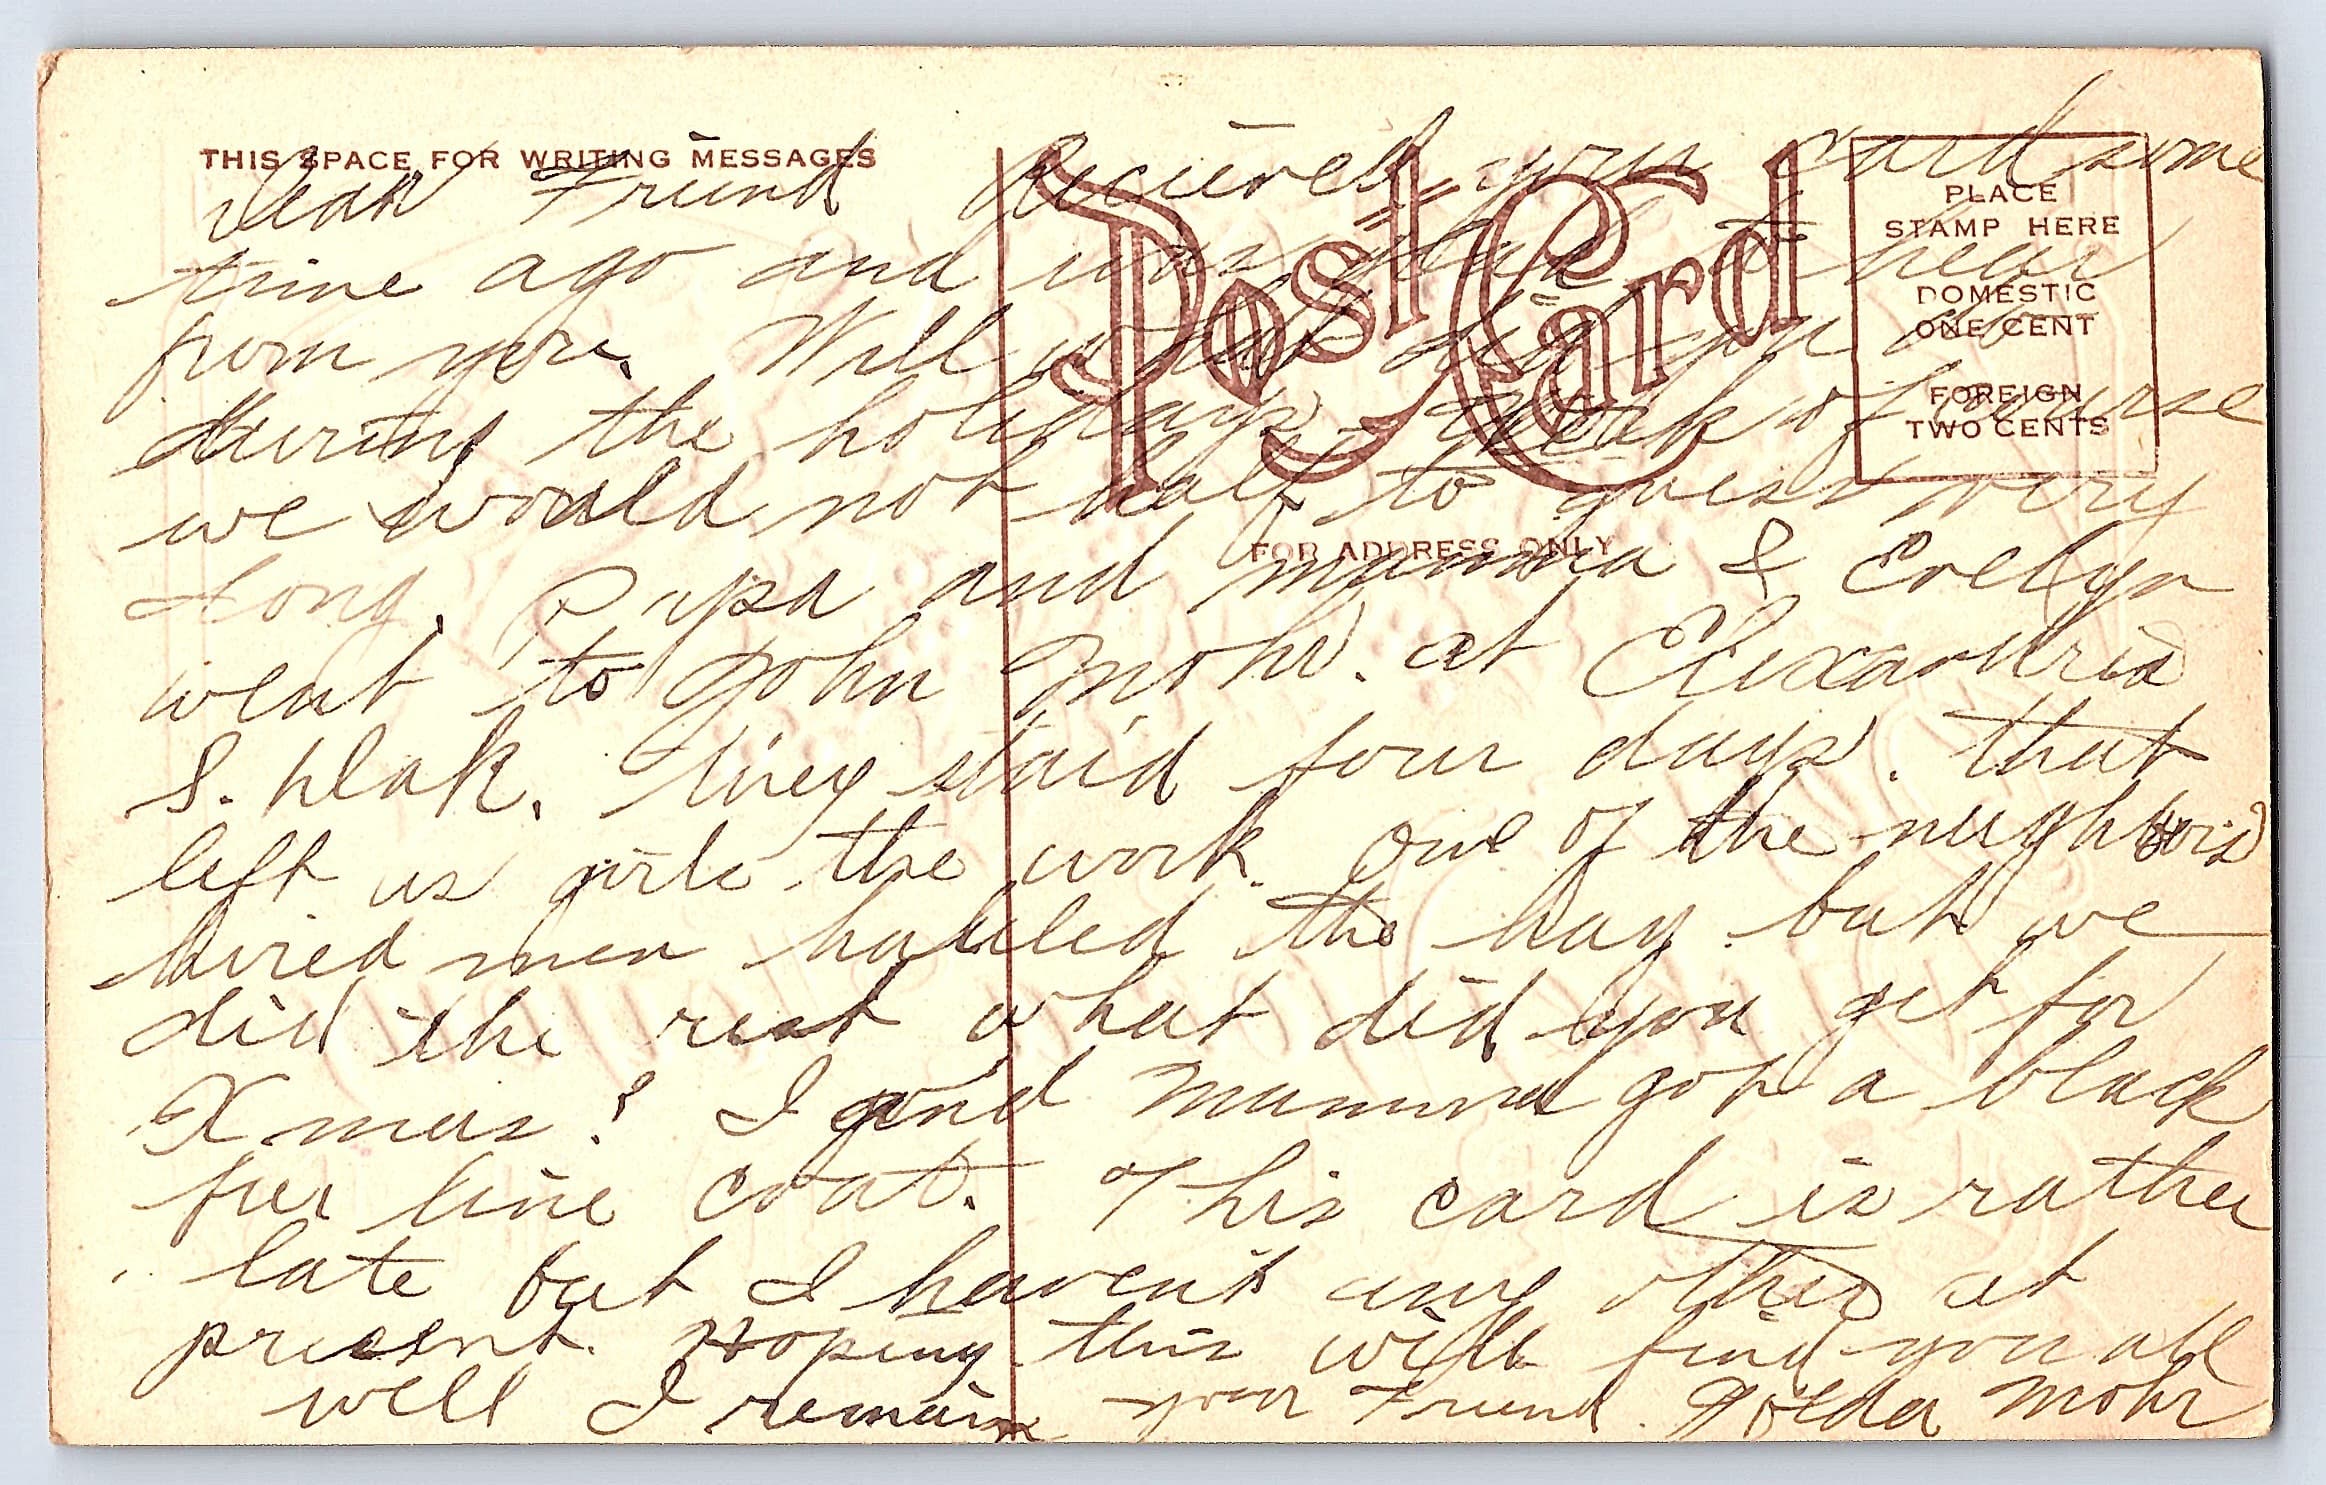 THIS SPACE FOR WRITING MESSAGES
Post Card
PLACE
STAMP HERE
DOMESTIC
ONE CENT
FOREIGN
TWO CENTS
FOR ADDRESS ONLY
Dear Friend Recieved your card some
time ago and was glad to hear
from you. Well what did you do
during the holidays. of course
we would not half to guess very
long. Papa and mamma & Evelyn
went to John Mohr. at Elexandria
S. Dak. They staid four days. that
left us girls the work. One of the neighbors
hired men hauled the hay but we
did the rest what did you get for
Xmas? I and Mamma got a black
fur line coat. This card is rather
late but I havent any other at
present. Hoping this will find you all
well I remain your Friend. Golda Mohr